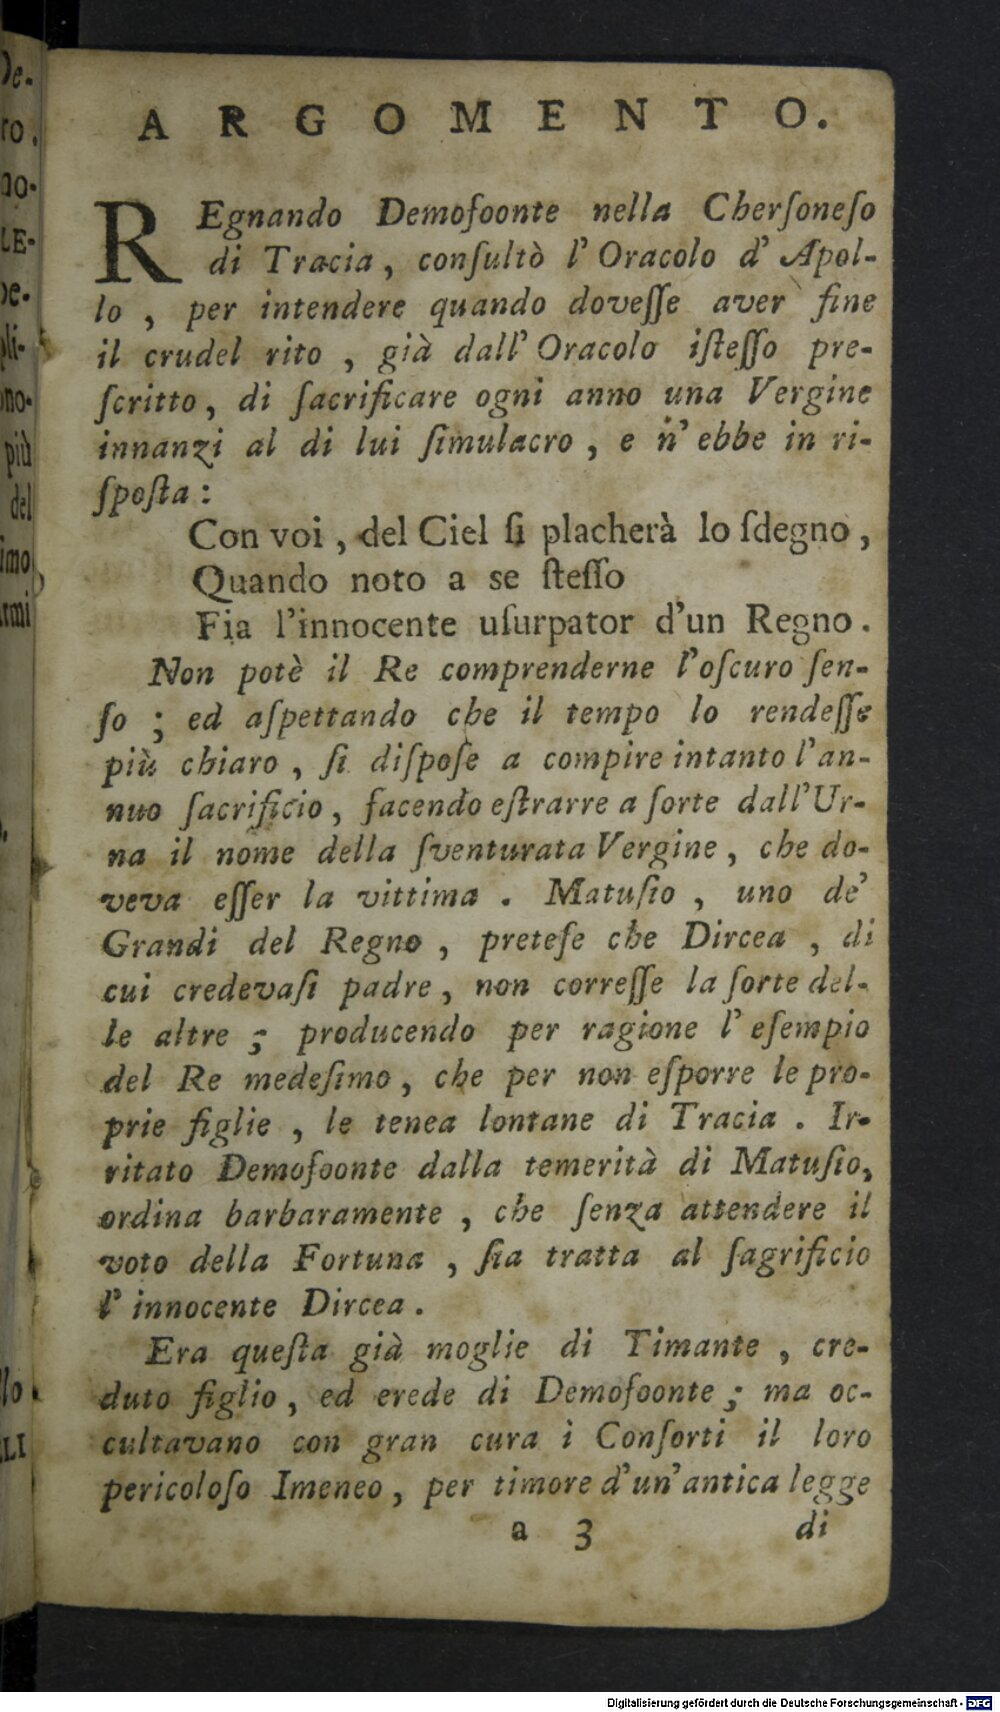 ARGOMENTO.
REgnando Demofoonte nella Cherſoneſo
di Tracia, conſultò l'Oracolo d'Apol-
lo, per intendere quando doveſſe aver fine
il crudel rito, già dall'Oracolo iſteſſo pre-
ſcritto, di ſacrificare ogni anno una Vergine
innanzi al di lui ſimulacro, e n'ebbe in ri-
ſpoſta:
Con voi, del Ciel ſi placherà lo ſdegno,
Quando noto a se ſteſſo
Fia l'innocente uſurpator d'un Regno.
Non potè il Re comprenderne l'oſcuro ſen-
ſo; ed aſpettando che il tempo lo rendeſſe
più chiaro, ſi diſpoſe a compire intanto l'an-
nuo ſacrificio, facendo eſtrarre a ſorte dall'Ur-
na il nome della ſventurata Vergine, che do-
veva eſſer la vittima. Matuſio, uno de'
Grandi del Regno, preteſe che Dircea, di
cui credevaſi padre, non correſſe la ſorte del-
le altre; producendo per ragione l'eſempio
del Re medeſimo, che per non eſporre le pro-
prie figlie, le tenea lontane di Tracia. Ir-
ritato Demofoonte dalla temerità di Matuſio,
ordina barbaramente, che ſenza attendere il
voto della Fortuna, ſia tratta al ſagrificio
l'innocente Dircea.
Era queſta già moglie di Timante, cre-
duto figlio, ed erede di Demofoonte; ma oc-
cultavano con gran cura i Conſorti il loro
pericoloſo Imeneo, per timore d'un'antica legge
a 3 di
De-
ro.
no-
LE-
pe-
pli-
ono-
più
del
imo
armi
llo
LI
Digitalisierung gefördert durch die Deutsche Forschungsgemeinschaft - DFG